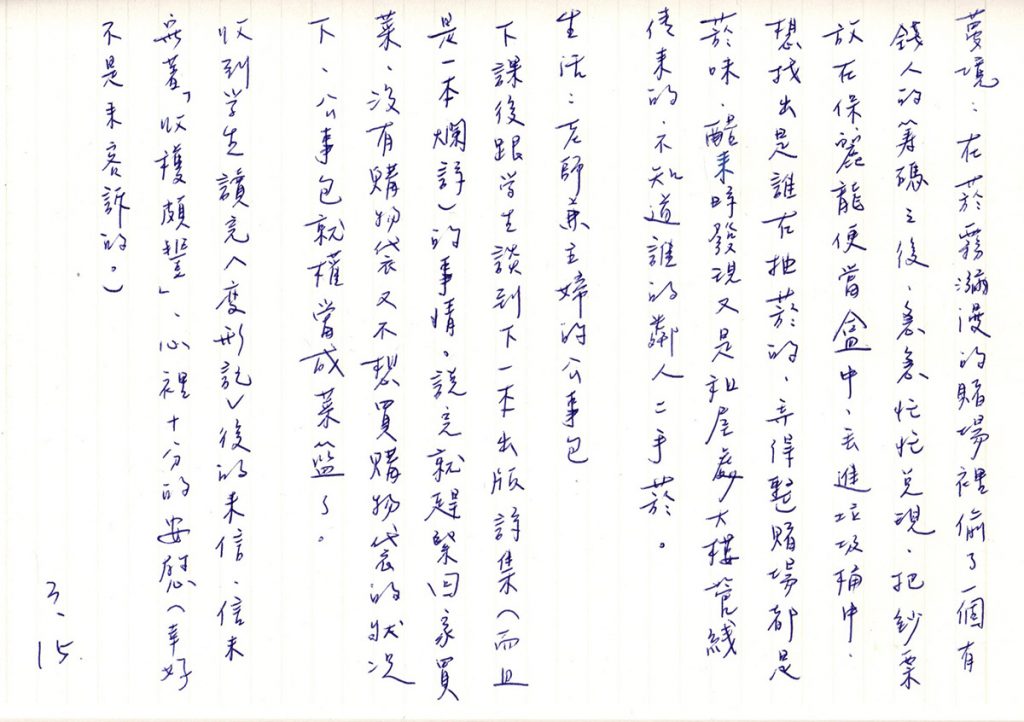 夢境：在菸霧瀰漫的賭場裡偷了一個有
錢人的籌碼之後、急急忙忙兌現、把鈔票
放在保麗龍便當盒中、丟進垃圾桶中、
想找出是誰在抽菸的、弄得整賭場都是
菸味、醒來時發現又是租屋處大樓管線
傳來的、不知道誰的鄰人二手菸。
生活：老師兼主婦的公事包
下課後跟学生談到下一本出版詩集（而且
是一本爛詩）的事情。說完就趕緊回家買
菜、沒有購物袋又不想買購物袋的狀況
下、公事包就權當成菜籃了。
收到学生讀完〈变形記〉後的来信、信末
寫著「收穫頗豐」、心裡十分的安慰（幸好
不是来客訴的。）
3、15